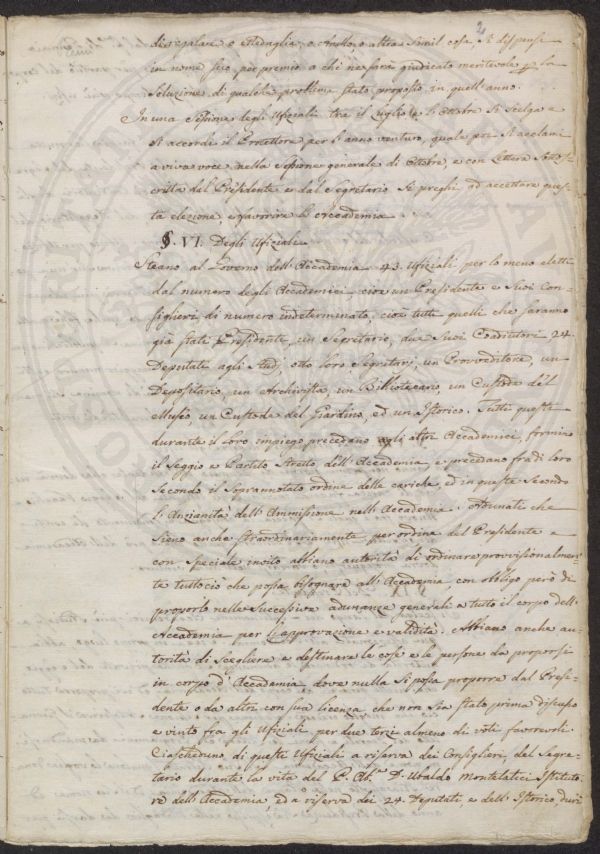 2
di regalare o Medaglia, o Anello, o altra simil cosa, si dispensi
in nome suo, per premio a chi ne sarà giudicato meritevole p la
soluzione di qualche problema stato proposto in quell'anno.
In una sessione degli Ufiziali tra il Luglio e l'Ottobre si scelga e
si accordi il Protettore per l'anno venturo, quale poi si acclami
a viva voce nella sessione generale di Ottobre, e con Lettera sottos
critta dal Presidente e dal Segretario si preghi ad accettare ques
ta elezione e favorire l'Accademia.
§. VI. Degli Ufiziali
Steano al Governo dell'Accademia 43. Ufiziali per lo meno eletti
dal numero degli Accademici cioè un Presidente e suoi Con=
siglieri, di numero indeterminato, cioè tutti quelli che saranno
già stati Presidente, un Segretario, due suoi Coadiutori 24
Deputati agli Studj otto loro Segretarj, un Provveditore, un
Depositario, un Archivista, un Bibliotecario, un Custode del
Museo, un Custode del Giardino, ed un Istorico. Tutti questi
durante il loro impiego precedano agli altri Accademici, formino
il seggio e Partito Stretto dell'Accademia, e precedano fra di loro
secondo il soprannotato ordine delle cariche, ed in queste secondo
l'Anzianità dell'Ammissione nell'Accademia. Adunati che
sieno anche straordinariamente per ordine del Presidente e
con speciale invito abbiano autorità di ordinare provvisionalmen=
te tuttociò che possa bisognare all'Accademia con obbligo però di
proporlo nelle successive adunanze generali a tutto il corpo dell'
Accademia per l'approvazione e validità. Abbiano anche au=
torità di scegliere e destinare le cose e le persone da proporsi
in corpo d'Accademia, dove nulla si possa proporre dal Presi=
dente o da altri con sua licenza, che non sia stato prima discusso
e vinto fra gli Ufiziali, per due terzi almeno di voti favorevoli.
Ciascheduno di questi Ufiziali a riserva dei Consiglieri, del Segre=
tario durante la vita del P. Ab.te D. Ubaldo Montelatici Istituto
re dell'Accademia ed a riserva dei 24 Deputati, e dell'Istorico, duri